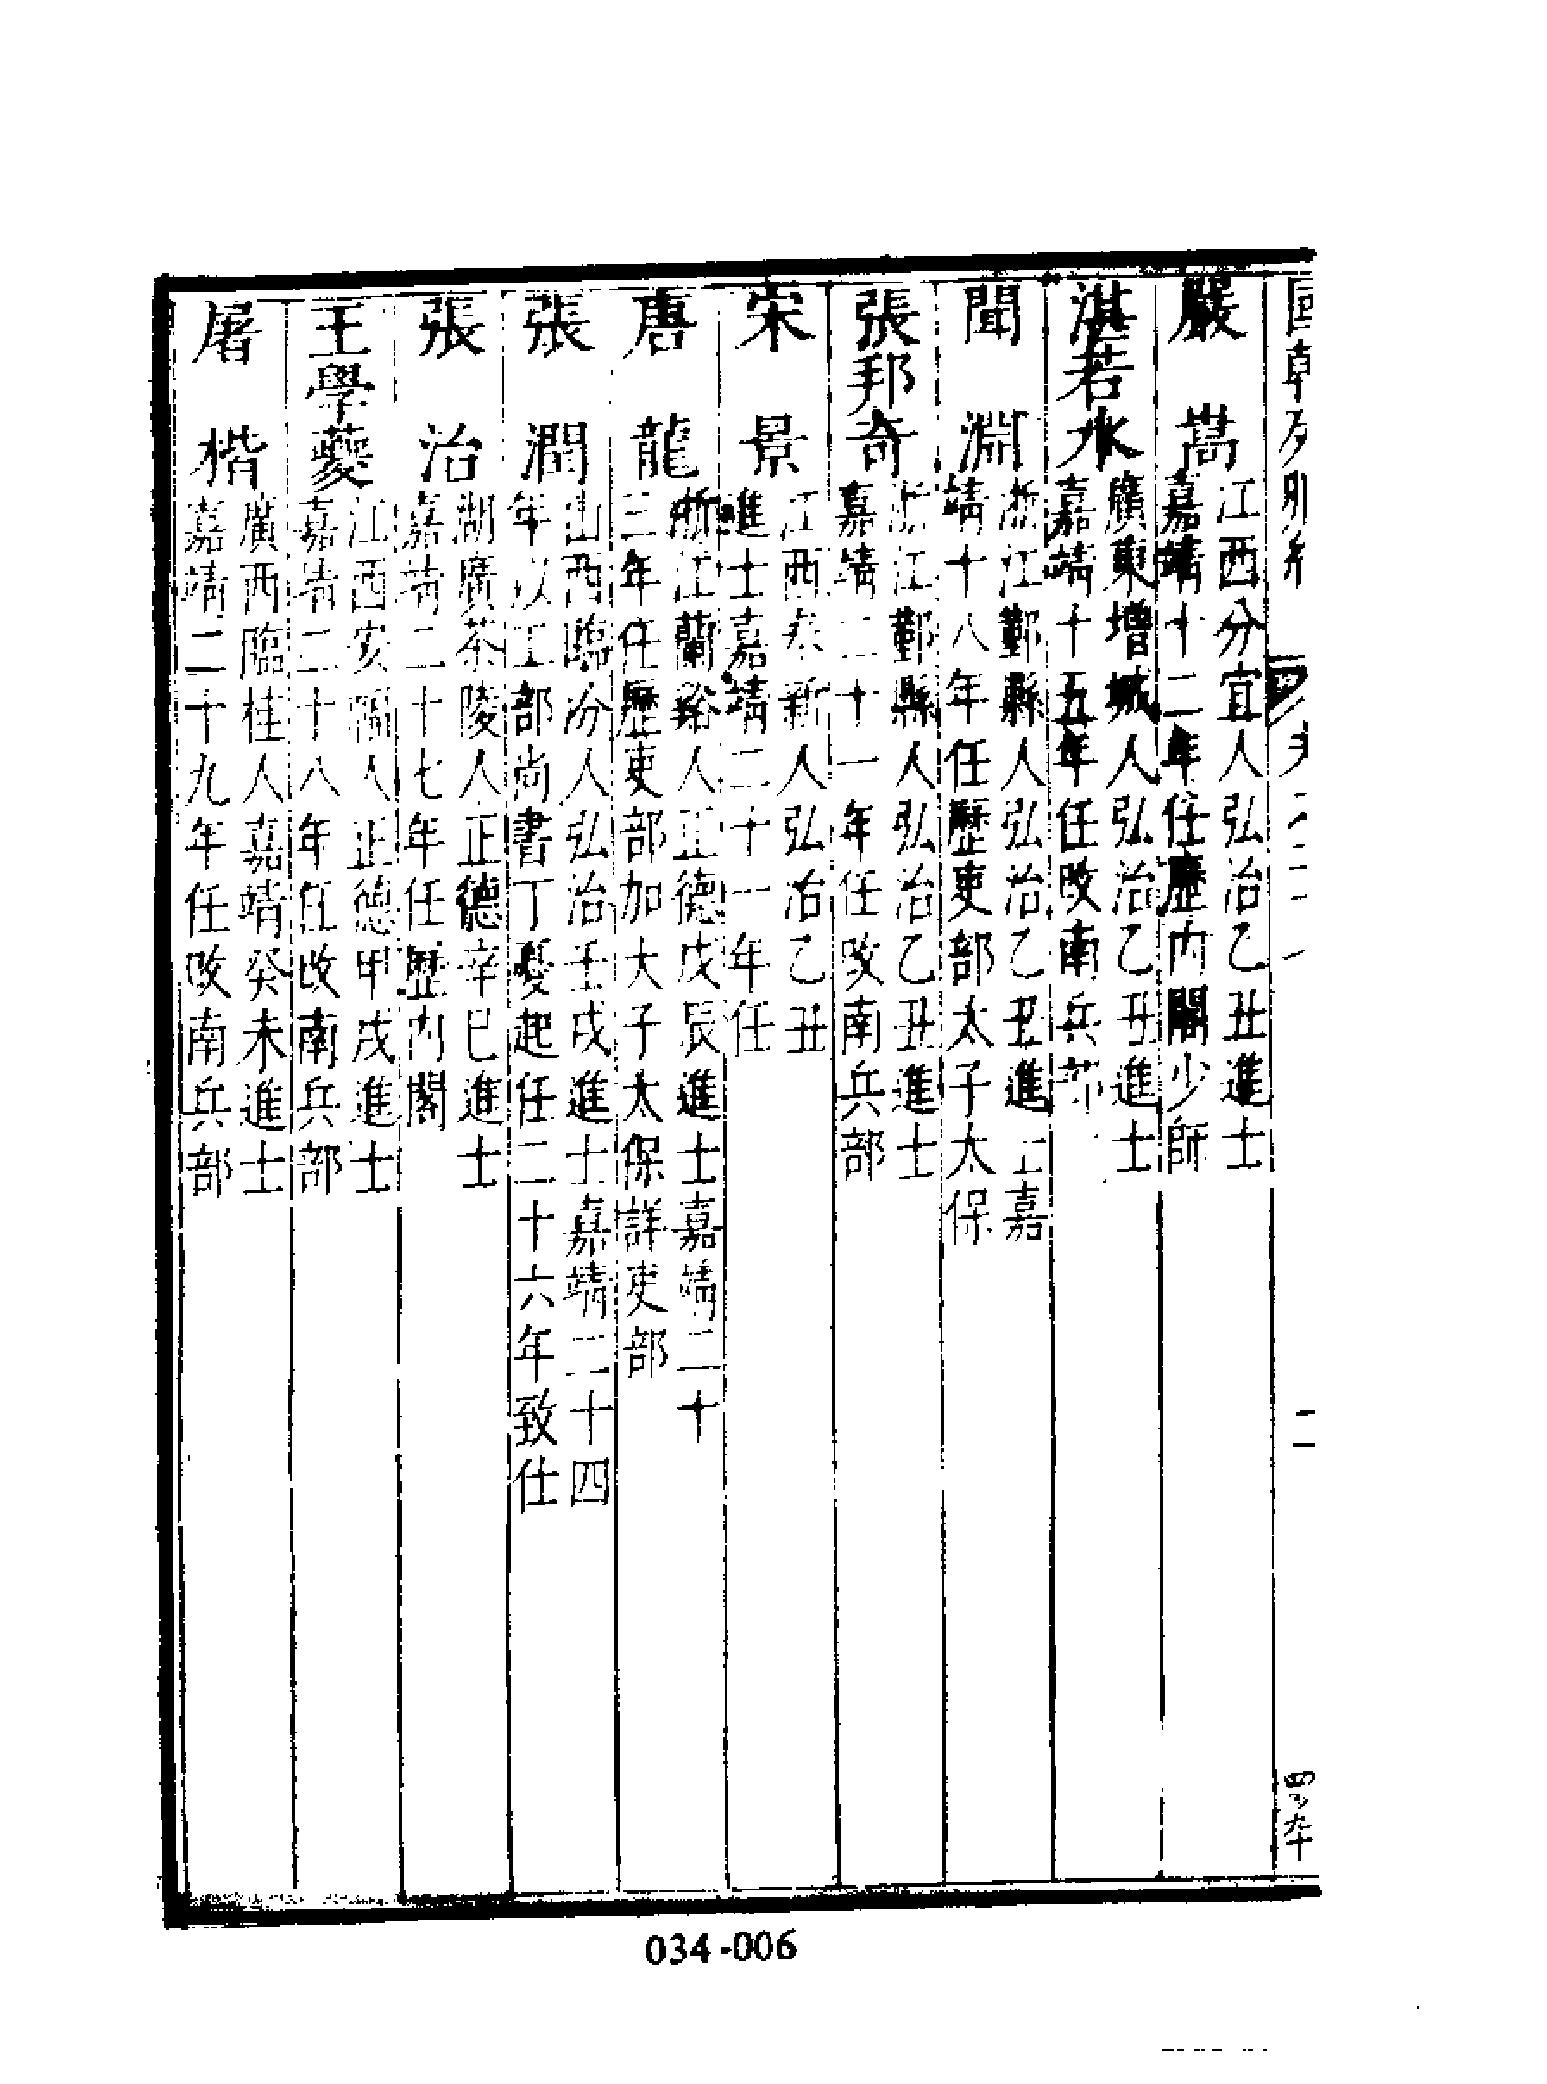 嚴 嵩
江西分宜人弘治乙丑進士
嘉靖十二年任歷內閣少師
湛若水
廣東增城人弘治乙丑進士
嘉靖十五年任改南兵部
聞 淵
浙江鄞縣人弘治乙丑進士嘉
靖十八年任歷吏部太子太保
張邦奇
浙江鄞縣人弘治乙丑進士
嘉靖二十一年任改南兵部
宋 景
江西奉新人弘治乙丑
進士嘉靖二十一年任
唐 龍
浙江蘭谿人正德戊辰進士嘉靖二十
三年任歷吏部加大子太保詳吏部
張 潤
山西臨汾人弘治壬戌進士嘉靖二十四
年以工部尚書丁憂起任二十六年致仕
張 治
湖廣茶陵人正德辛巳進士
嘉靖二十七年任歷內閣
王學夔
江西安福人正德甲戌進士
嘉靖二十八年任改南兵部
屠 楷
廣西臨桂人嘉靖癸未進士
嘉靖二十九年任改南兵部
034-006